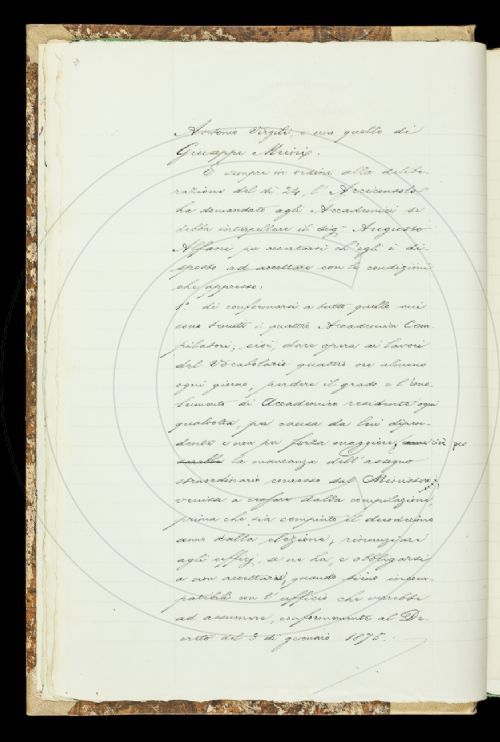 Antonio Virgili, e una quello di
Giuseppe Meini.
E sempre in ordine alla delibe-
razione del dì 24, l'Arciconsolo
ha domandato agli Accademici se
debba interpellare il sig. Augusto
Alfani per accertarsi ch'egli è di-
sposto ad accettare con le condizioni
che appresso:
1° di conformarsi a tutto quello cui
sono tenuti i quattro Accademici Com-
pilatori; cioè, dare opera ai lavori
del Vocabolario quattro ore almeno
ogni giorno; perdere il grado e l'emo-
lumento di Accademico residente ogni
qualvolta, per causa da lui dipen-
dente e non per forza maggiore,
la mancanza dell'assegno
straordinario concesso dal Ministero,
venisse a cessare dalla compilazione
prima che sia compiuto il
anno dalla elezione; rinunziare
agli uffizj, se ne ha, e obbligarsi
a non accettarne, quando siano incom-
patibili con l'ufficio che verrebbe
ad assumere, conformemente al De-
creto del 3 di gennaio 1875.